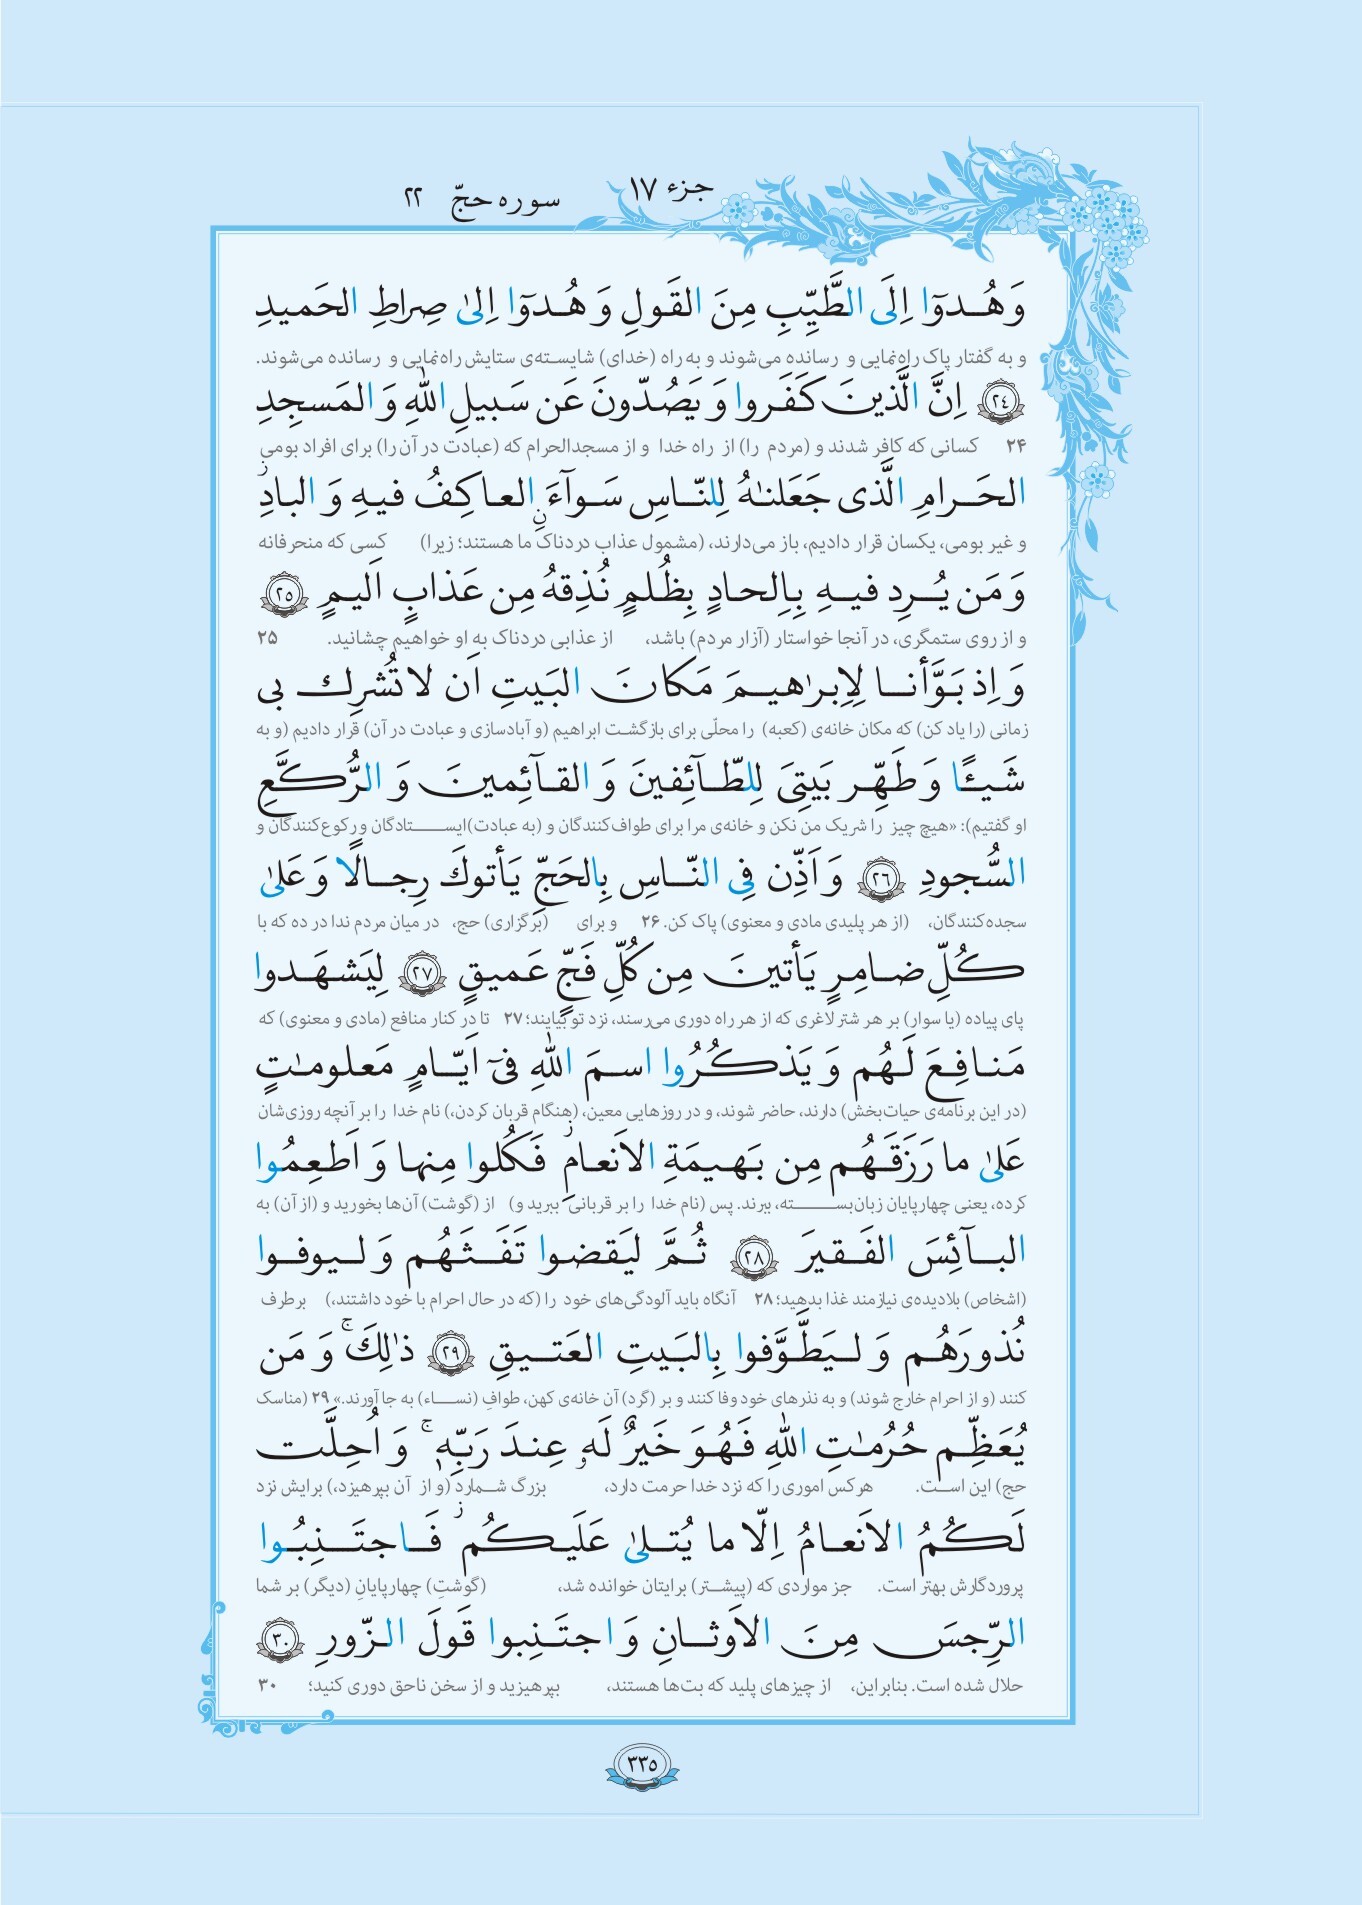 جزء ۱۷
سوره حجّ ۲۲
وَ هُدوٓا اِلَى الطَّيِّبِ مِنَ القَولِ وَ هُدوٓا اِلىٰ صِراطِ الحَميدِ
و به گفتار پاک راه‌نمایی و رسانده می‌شوند و به راه (خدای) شایسته‌ی ستایش راه‌نمایی و رسانده می‌شوند.
﴿٢٤﴾ اِنَّ الَّذينَ كَفَروا وَ يَصُدّونَ عَن سَبيلِ اللّٰهِ وَ المَسجِدِ
۲۴ کسانی که کافر شدند و (مردم را) از راه خدا و از مسجدالحرام که (عبادت در آن را) برای افراد بومی
الحَرامِ الَّذى جَعَلنٰهُ لِلنّاسِ سَوآءَ ۨ العاكِفُ فيهِ وَ البادِ ۚ
و غیر بومی، یکسان قرار دادیم، باز می‌دارند، (مشمول عذاب دردناک ما هستند؛ زیرا) کسی که منحرفانه
وَ مَن يُرِد فيهِ بِاِلحادٍ بِظُلمٍ نُذِقهُ مِن عَذابٍ اَليمٍ ﴿٢٥﴾
و از روی ستمگری، در آنجا خواستار (آزار مردم) باشد، از عذابی دردناک به او خواهیم چشانید. ۲۵
وَ اِذ بَوَّأنا لِاِبرٰهيمَ مَكانَ البَيتِ اَن لا تُشرِك بى
زمانی (را یاد کن) که مکان خانه‌ی (کعبه) را محلّی برای بازگشت ابراهیم (و آبادسازی و عبادت در آن) قرار دادیم (و به
شَيـًٔا وَ طَهِّر بَيتِىَ لِلطّآئِفينَ وَ القآئِمينَ وَ الرُّكَّعِ
او گفتیم): «هیچ چیز را شریک من نکن و خانه‌ی مرا برای طواف‌کنندگان و (به عبادت)ایستادگان و رکوع‌کنندگان و
السُّجودِ ﴿٢٦﴾ وَ اَذِّن فِى النّاسِ بِالحَجِّ يَأتوكَ رِجالًا وَ عَلىٰ
سجده‌کنندگان، (از هر پلیدی مادی و معنوی) پاک کن. ۲۶ و برای (برگزاری) حج، در میان مردم ندا در ده که با
كُلِّ ضامِرٍ يَأتينَ مِن كُلِّ فَجٍّ عَميقٍ ﴿٢٧﴾ لِيَشهَدوا
پای پیاده (یا سوار) بر هر شتر لاغری که از هر راه دوری می‌رسند، نزد تو بیایند؛ ۲۷ تا در کنار منافع (مادی و معنوی) که
مَنافِعَ لَهُم وَ يَذكُرُوا اسمَ اللّٰهِ فىٓ اَيّامٍ مَعلومٰتٍ
(در این برنامه‌ی حیات‌بخش) دارند، حاضر شوند، و در روزهایی معین، (هنگام قربان کردن،) نام خدا را بر آنچه روزی‌شان
عَلىٰ ما رَزَقَهُم مِن بَهيمَةِ الاَنعامِ ۖ فَكُلوا مِنها وَ اَطعِمُوا
کرده، یعنی چهارپایان زبان‌بسته، ببرند. پس (نام خدا را بر قربانی ببرید و) از (گوشت) آن‌ها بخورید و (از آن) به
البآئِسَ الفَقيرَ ﴿٢٨﴾ ثُمَّ ليَقضوا تَفَثَهُم وَ ليوفوا
(اشخاص) بلادیده‌ی نیازمند غذا بدهید؛ ۲۸ آنگاه باید آلودگی‌های خود را (که در حال احرام با خود داشتند،) برطرف
نُذورَهُم وَ ليَطَّوَّفوا بِالبَيتِ العَتيقِ ﴿٢٩﴾ ذٰلِكَ ۚ وَ مَن
کنند (و از احرام خارج شوند) و به نذرهای خود وفا کنند و بر (گرد) آن خانه‌ی کهن، طوافِ (نساء) به جا آورند.» ۲۹ (مناسک
يُعَظِّم حُرُمٰتِ اللّٰهِ فَهُوَ خَيرٌ لَهۥ عِندَ رَبِّهٖ ۚ وَ اُحِلَّت
حج) این است. هرکس اموری را که نزد خدا حرمت دارد، بزرگ شمارد (و از آن بپرهیزد،) برایش نزد
لَكُمُ الاَنعامُ اِلّا ما يُتلىٰ عَلَيكُم ۖ فَاجتَنِبُوا
پروردگارش بهتر است. جز مواردی که (پیشتر) برایتان خوانده شد، (گوشتِ) چهارپایانِ (دیگر) بر شما
الرِّجسَ مِنَ الاَوثانِ وَ اجتَنِبوا قَولَ الزّورِ ﴿٣٠﴾
حلال شده است. بنابراین، از چیزهای پلید که بت‌ها هستند، بپرهیزید و از سخن ناحق دوری کنید؛ ۳۰
۳۳۵